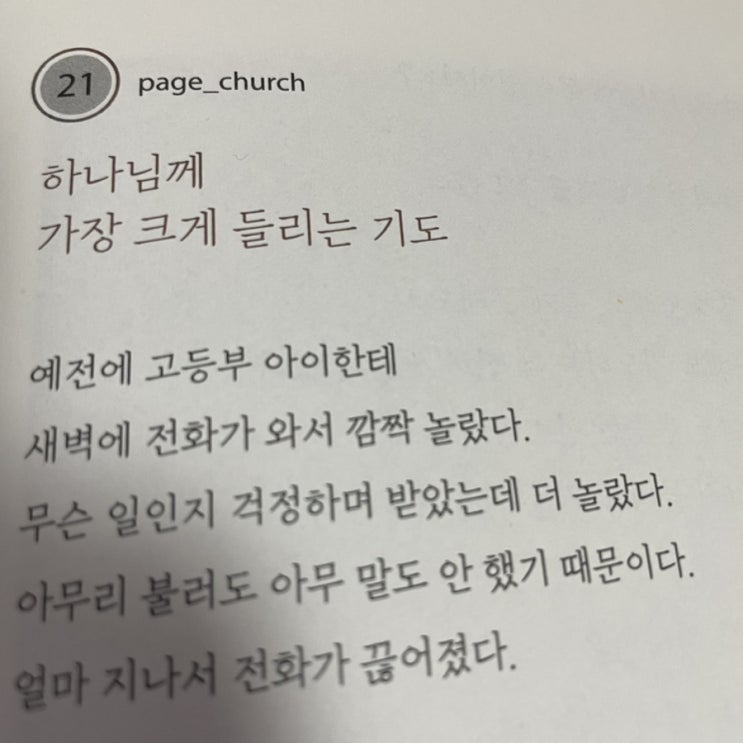 21 page_church
하나님께
가장 크게 들리는 기도
예전에 고등부 아이한테
새벽에 전화가 와서 깜짝 놀랐다.
무슨 일인지 걱정하며 받았는데 더 놀랐다.
아무리 불러도 아무 말도 안 했기 때문이다.
얼마 지나서 전화가 끊어졌다.